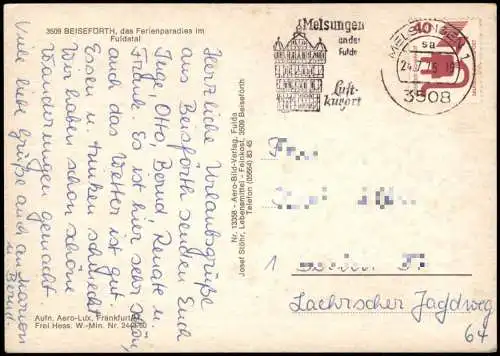 3509 BEISEFÖRTH, das Ferienparadies im
Fuldatal
Herzliche Urlaubsgrüße
aus Beisförth senden Euch
Inge, Otto, Bernd, Renate u.
Frank. Es ist hier sehr schön,
auch das Wetter ist gut.
Essen u. trinken schmeckt
Wir haben schon schöne
Wanderungen gemacht.
Viele liebe Grüße auch an Marion
u. Bernd.
Aufn. Aero-Lux, Frankfurt/
Frei Hess. W.-Min. Nr.
Nr. 13358 - Aero-Bild-Verlag, Fulda
Josef Stöhr, Lebensmittel - Feinkost, 3509 Beiseförth
Telefon (05664) 83 45
Melsungen
an der
Fulda
Luft-
kurort
MELSUNGEN 1
sa
3508
40
1
Lachrischer Jagdweg
64